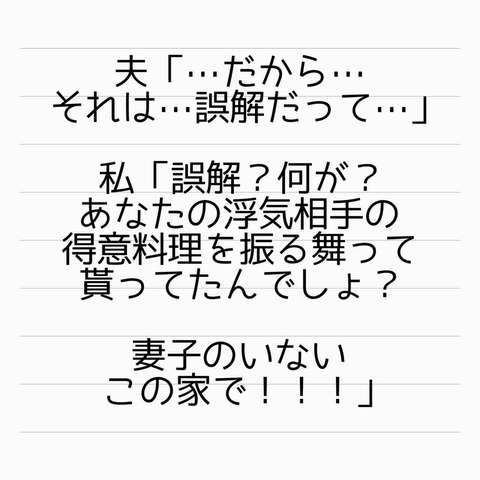 夫「…だから…
それは…誤解だって…」
私「誤解？何が？
あなたの浮気相手の
得意料理を振る舞って
貰ってたんでしょ？
妻子のいない
この家で！！！」